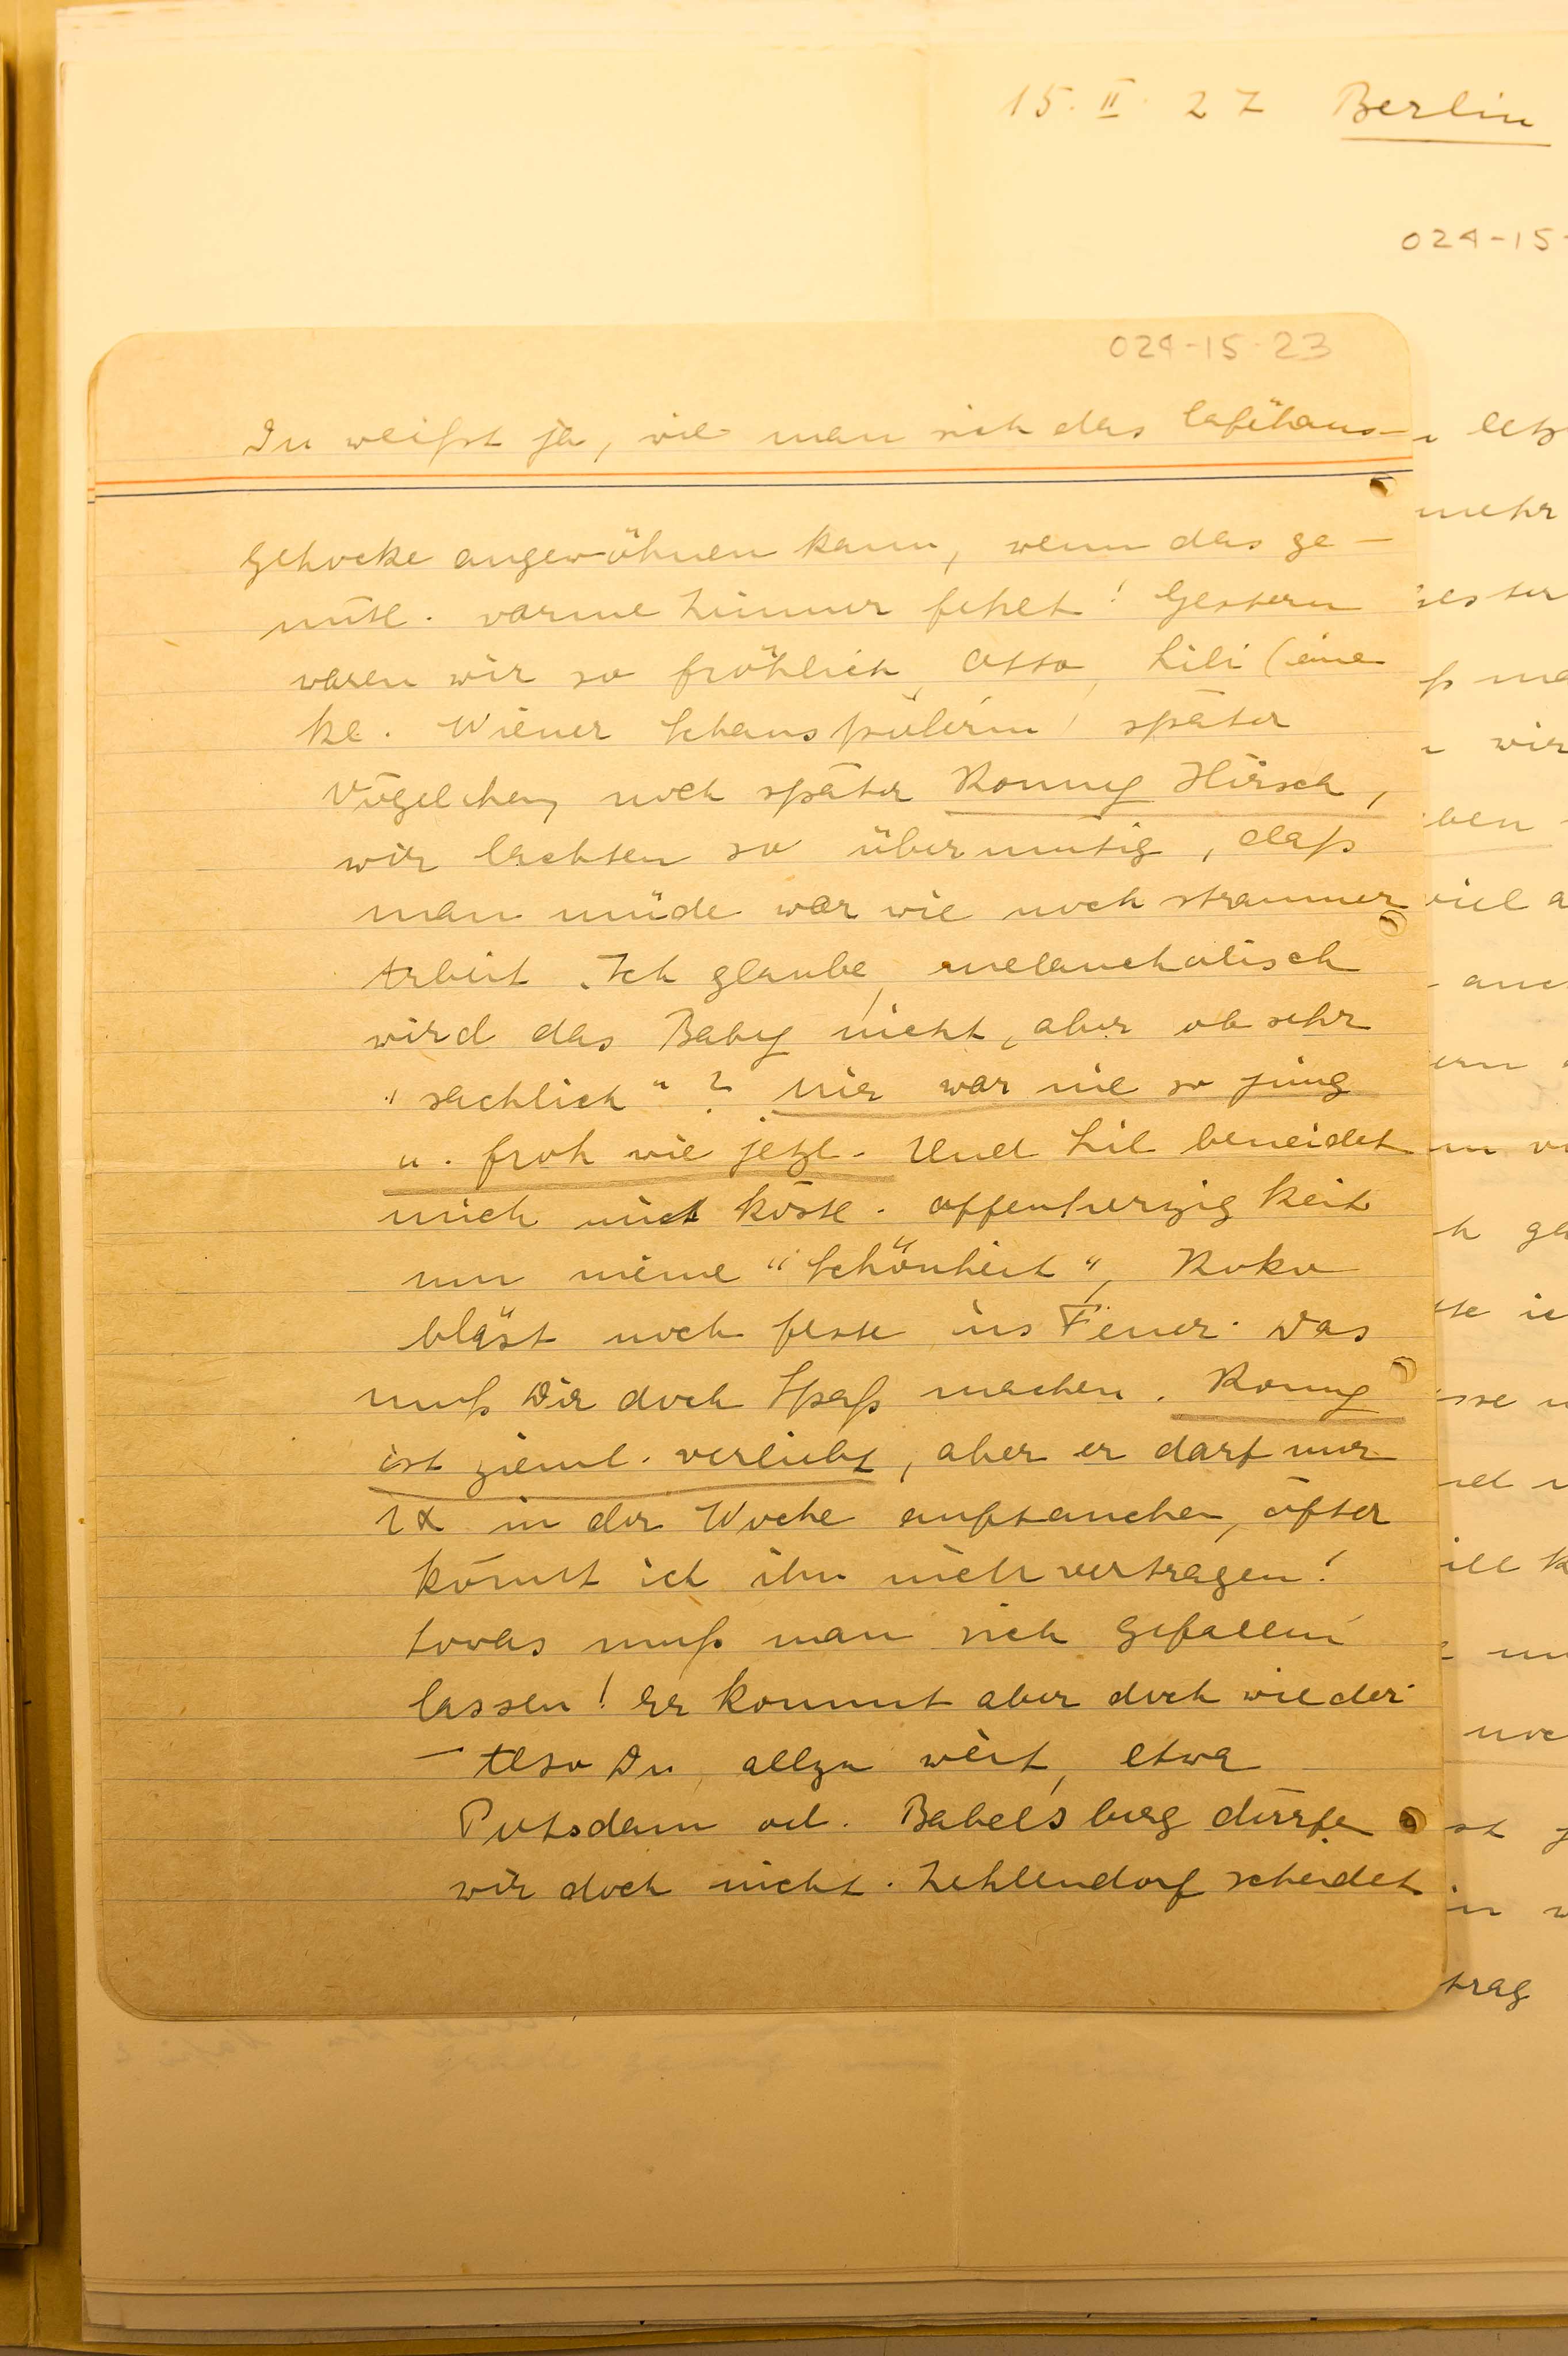 15. II. 27 Berlin
024-15-
024-15-23
Du weißt ja, wie man sich das Caféhaus-
gehocke angewöhnen kann, wenn das ge-
mütl. warme Zimmer fehlt! Gestern
waren wir so fröhlich, Otto, Lili (eine
kl. Wiener Schauspielerin) später
Vögelchen, noch später Konny Hirsch,
wir lachten so übermütig, daß
man müde war wie nach strammer
Arbeit. Ich glaube, melancholisch
wird das Baby nicht, aber ob sehr
"sachlich"? Mir war nie so jung
u. froh wie jetzt. Und Lil beneidet
mich mit köstl. Offenherzigkeit
um meine "Schönheit", Koko
bläst noch feste ins Feuer. Das
muß Dir doch Spaß machen. Konny
ist zieml. verliebt, aber er darf nur
1x in der Woche auftauchen, öfter
könnt ich ihn nicht vertragen!
Sowas muß man sich gefallen
lassen! Er kommt aber doch wieder.
— Also Du, allzu weit, etwa
Potsdam od. Babelsburg dürfen
wir doch nicht. Zehlendorf scheidet
mehr
wir
viel
trag